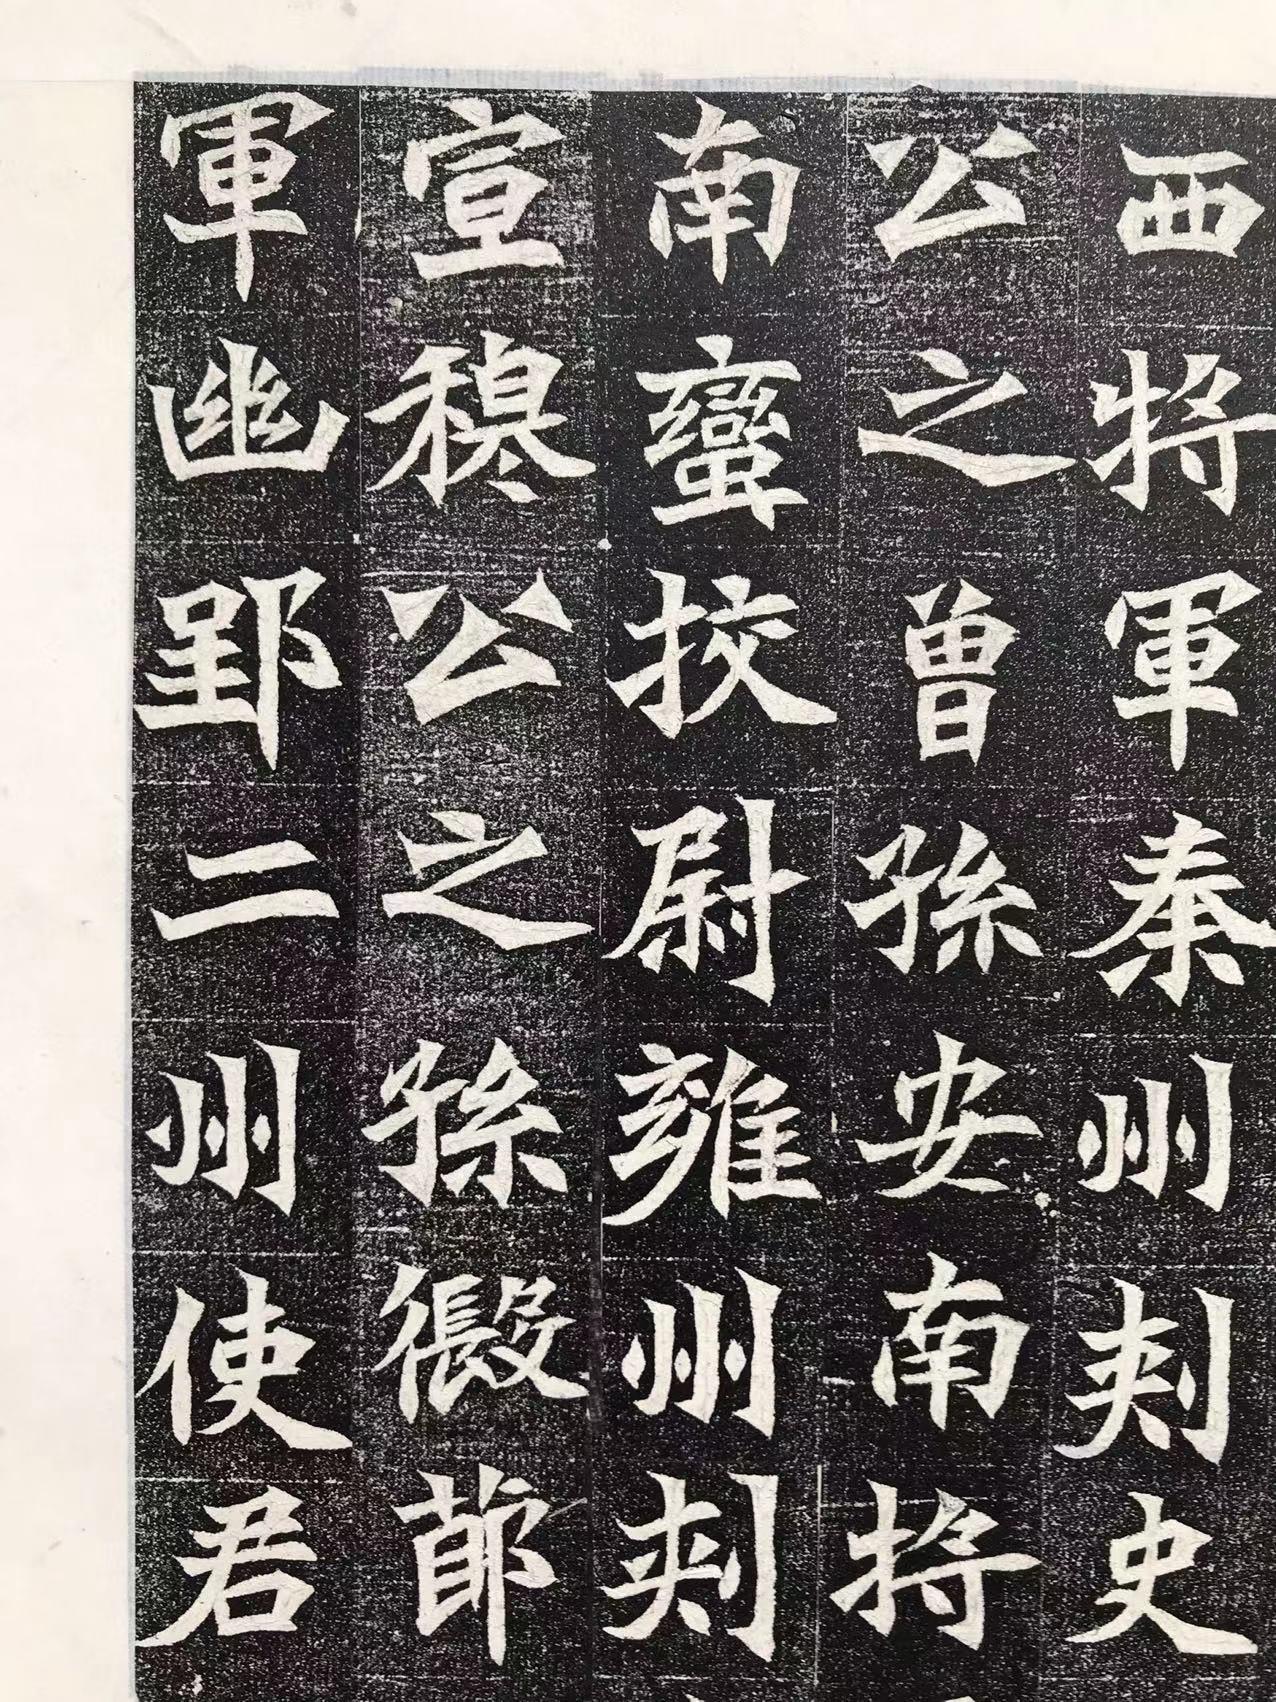 西將軍秦州刾史
公之曾孫安南將
南蠻挍尉雍州刾
宣穆公之孫假節
軍幽郢二州使君